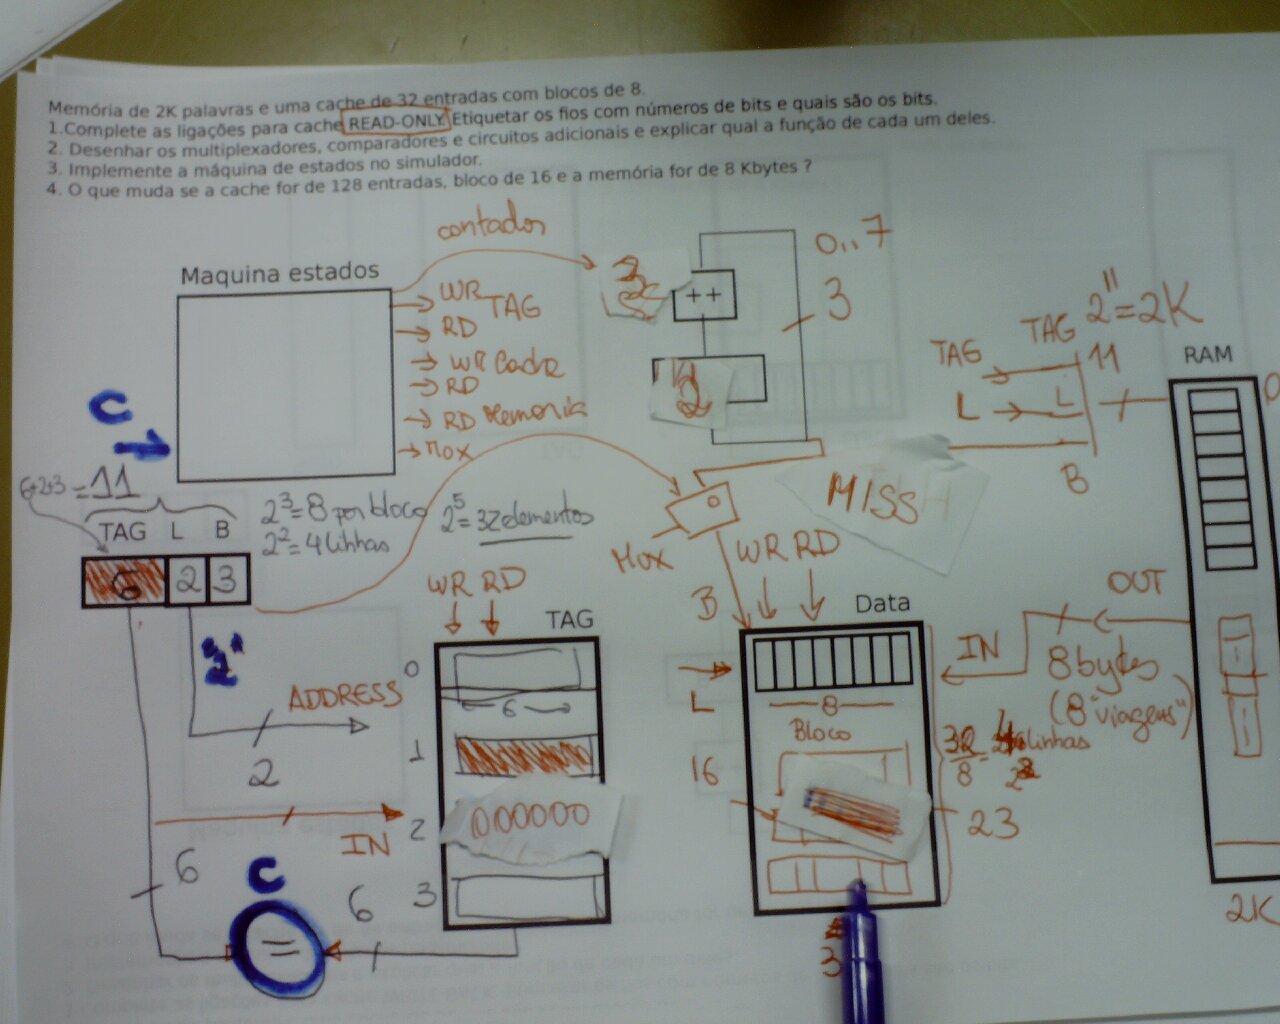 Memória de 2K palavras e uma cache de 32 entradas com blocos de 8.
1.Complete as ligações para cache READ-ONLY. Etiquetar os fios com números de bits e quais são os bits.
2. Desenhar os multiplexadores, comparadores e circuitos adicionais e explicar qual a função de cada um deles.
3. Implemente a máquina de estados no simulador.
4. O que muda se a cache for de 128 entradas, bloco de 16 e a memória for de 8 Kbytes ?
contador
0..7
Maquina estados
WR TAG
RD
WR Cache
RD
RD Memoria
MUX
++
3
2
TAG 2¹¹=2K
TAG
11
L
L
B
RAM
0
C
6+2+3=11
2³=8 por bloco
2²=4 linhas
2⁵=32 elementos
TAG L B
6 2 3
MISS
MUX
WR RD
B
WR RD
TAG
Data
OUT
IN
8 bytes
(8 "viagens")
"2"
ADDRESS
2
0
6
L
8
Bloco
1
16
32/8
linhas
IN
2
000000
23
6
C
6
3
=
3
2K